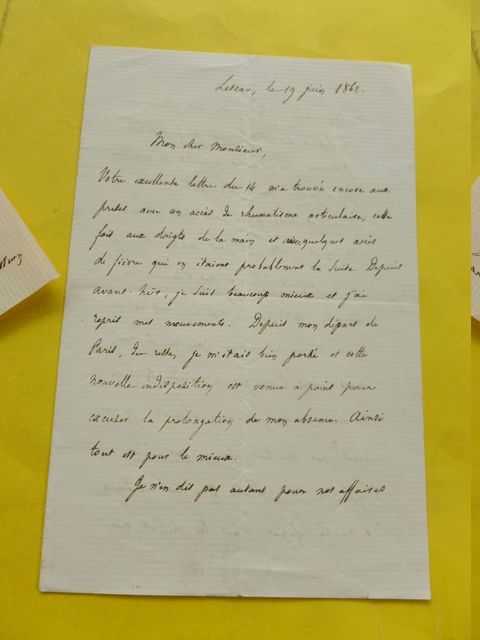 Lescar, le 19 juin 1862.
Mon cher Monsieur,
Votre excellente lettre du 14 m'a trouvé encore aux
prises avec un accès de rhumatisme articulaire, cette
fois aux doigts de la main et quelques accès
de fièvre qui en étaient probablement la suite. Depuis
avant-hier, je suis beaucoup mieux et j'ai
repris mes mouvements. Depuis mon départ de
Paris, du reste, je m'étais bien porté et cette
nouvelle indisposition est venue à point pour
excuser la prolongation de mon absence. Ainsi
tout est pour le mieux.
Je n'en dis pas autant pour nos affaires